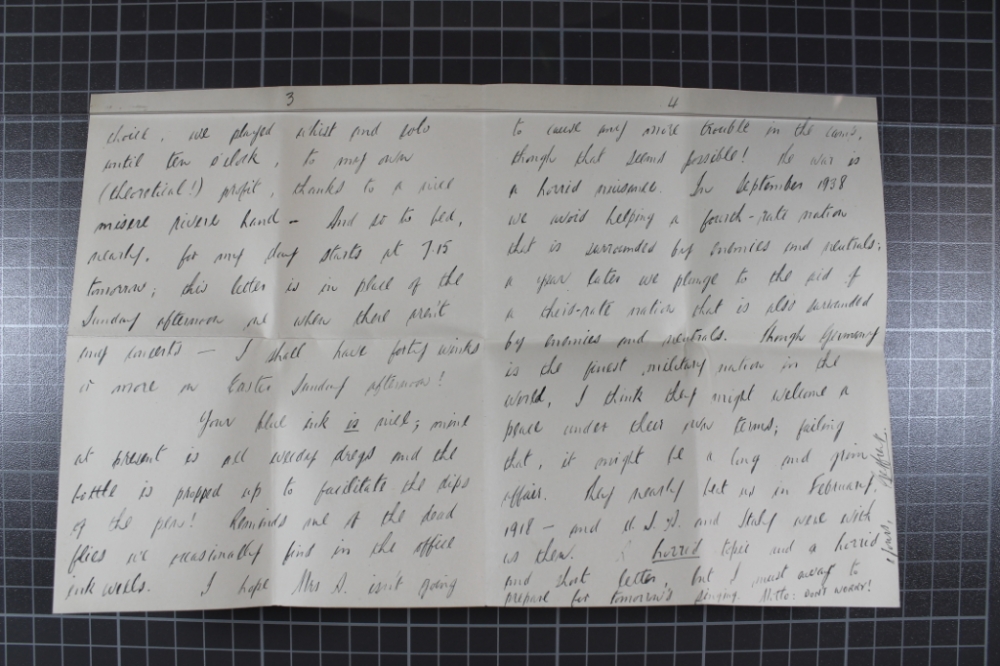 3
choice, we played whist and solo
until ten o'clock, to my own
(theoretical!) profit, thanks to a nice
misere hand – And so to bed,
nearly, for my day starts at 7.15
tomorrow; this letter is in place of the
Sunday afternoon one when there aren't
any concerts – I shall have forty winks
or more on Easter Sunday afternoon!
Your blue ink is nice; mine
at present is all dregs and the
bottle is propped up to facilitate the dips
of the pens! Reminds me of the dead
flies we occasionally find in the office
ink wells. I hope Mrs A. isn't going
4
to cause any more trouble in the
though that seems possible! The war is
a horrid nuisance. In September 1938
we avoid helping a fourth-rate nation
that is surrounded by enemies and neutrals;
a year later we plunge to the aid of
a third-rate nation that is also surrounded
by enemies and neutrals. Though Germany
is the finest military nation in the
world, I think they might welcome a
peace under their own terms; failing
that, it might be a long and grim
affair. They nearly beat us in February,
1918 – and U.S.A. and Italy were with
us then. A horrid topic and a horrid
and short letter, but I must away to
prepare for tomorrow's singing. Ditto: don't worry!
Yours,